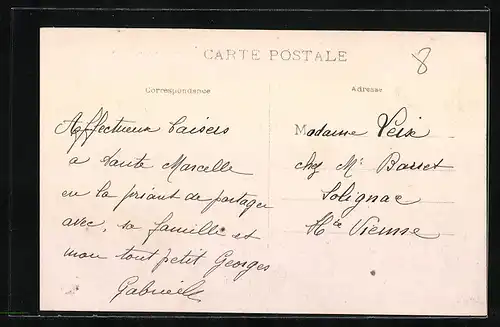 CARTE POSTALE
8
Correspondance
Adresse
Affectueux baisers
a tante Marcelle
en la priant de partager
avec, sa famille et
mon tout petit Georges
Gabrielle
Madame Veix
chez Mr Barret
Solignac
Hte Vienne